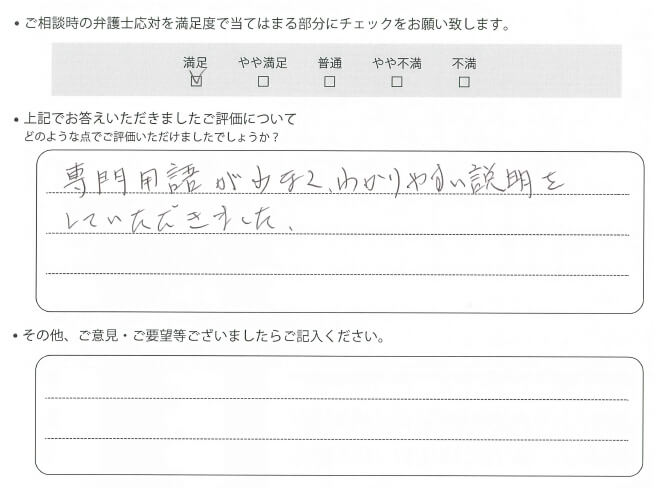 • ご相談時の弁護士応対を満足度で当てはまる部分にチェックをお願い致します。
満足 やや満足 普通 やや不満 不満
• 上記でお答えいただきましたご評価について
どのような点でご評価いただけましたでしょうか？
専門用語が少なく、わかりやすい説明を
していただきました。
• その他、ご意見・ご要望等ございましたらご記入ください。